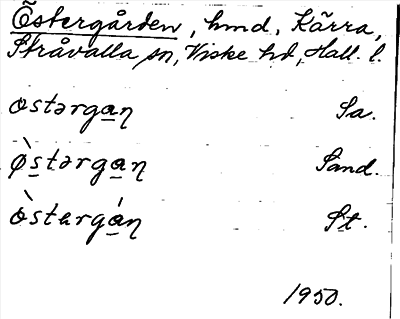 Östergården, hmd, Kärra,
Stråvalla sn, Viske hd, Hall. l.
østərgan̥ Sa.
ø̀stərgan̥ Sand.
ø̀stərgán̥ St.
1950.